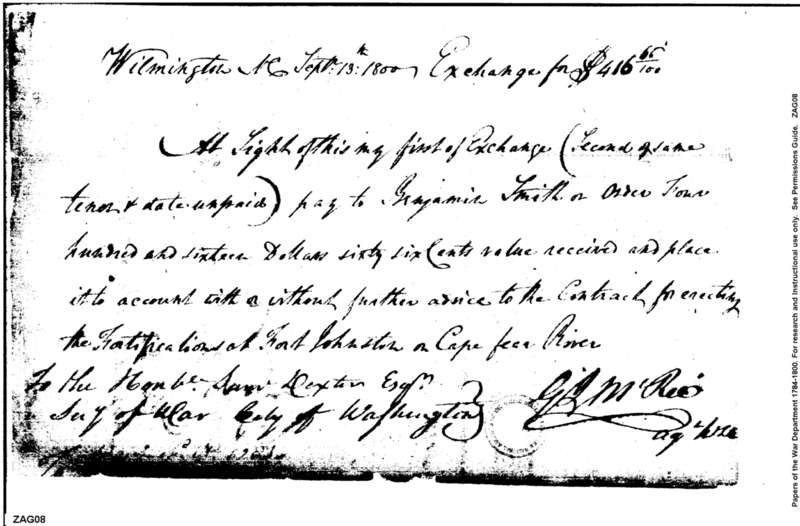 Wilmington NC Septr. 13th: 1800 Exchange for $416 66/100
At Sight of this my first of Exchange (Second of same
tenor & date unpaid) pay to Benjamin Smith or Order Four
hundred and sixteen Dollars sixty six Cents value received and place
it to account with or without further advice to the Contract for erecting
the Fortifications at Fort Johnston on Cape fear River
To the Honble. Saml Dexter Esqr.
Secy of War City of Washington
G J McRee
agt W
ZAG08
Papers of the War Department 1784-1800. For research and Instructional use only. See Permissions Guide. ZAG08